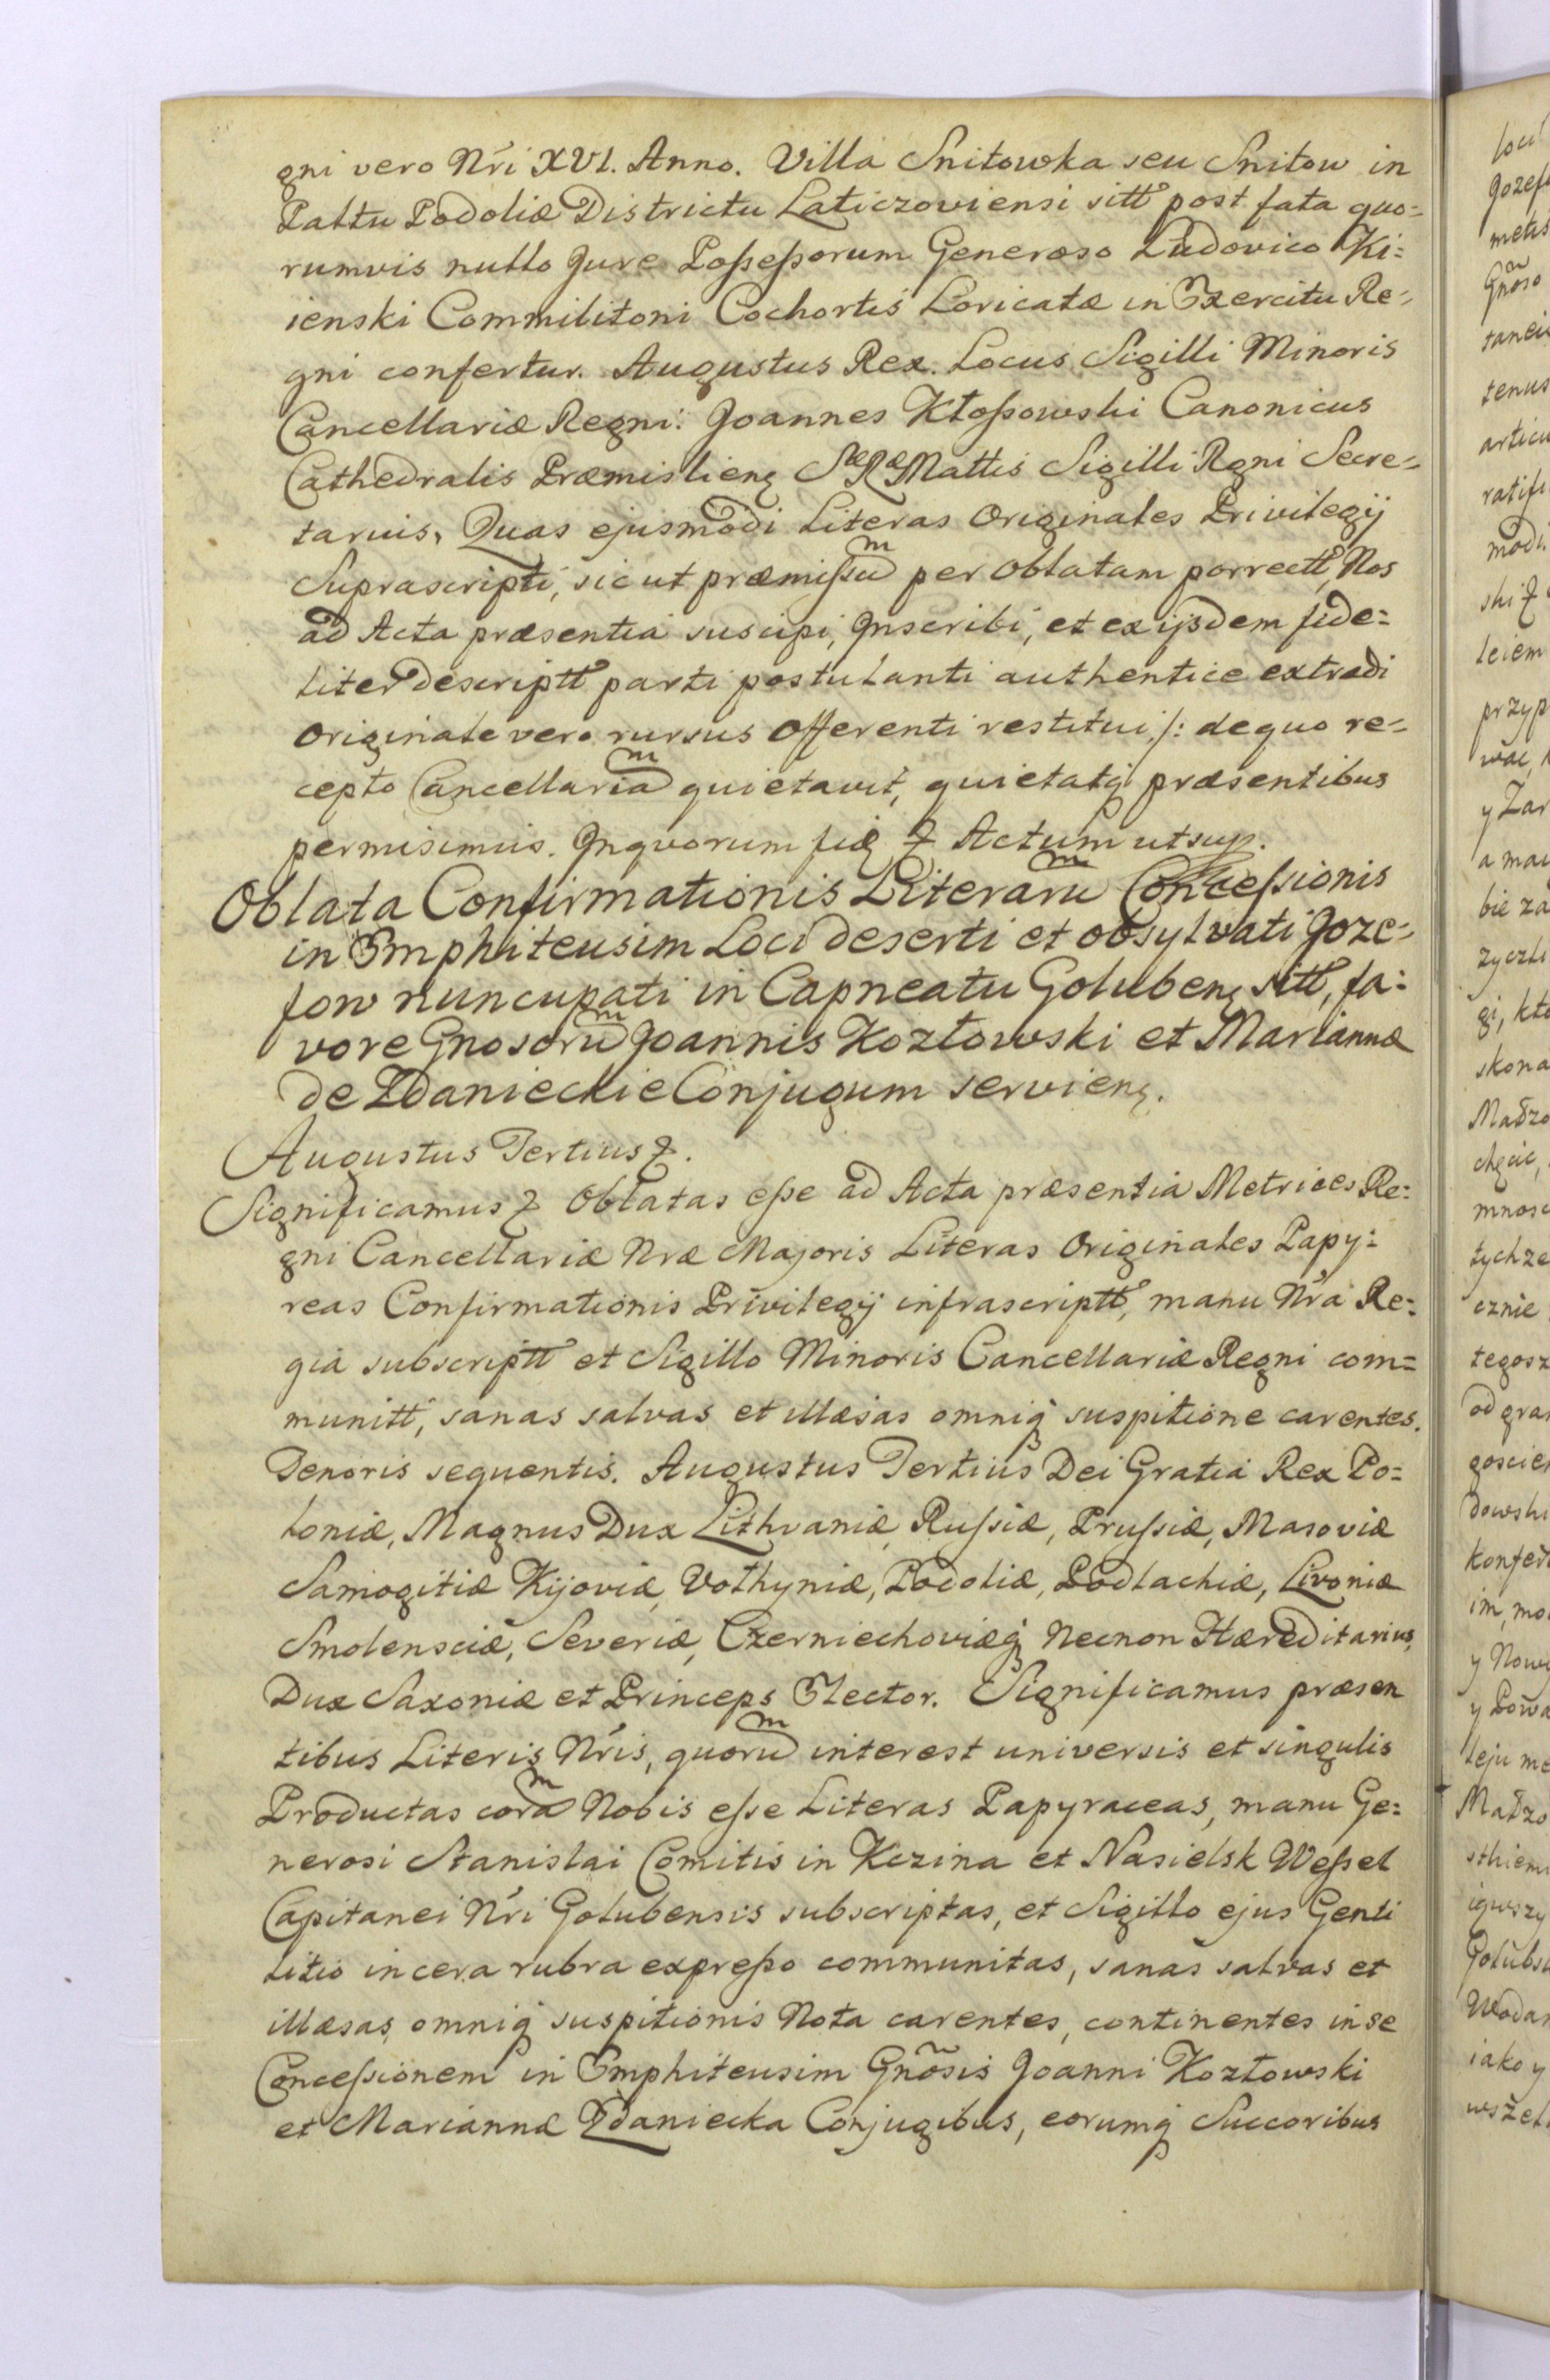 gni vero Nri XVI. Anno. Villa Snitowka seu Snitow in
Paltu Podoliæ Districtu Laticzoviensi sitt post fata quo=
rumvis nullo Jure Poßeßorum Generoso Ludovico Ki=
ienski Commilitoni Cochortis Loricatæ in Exercitu Re=
gni confertur. Augustus Rex. Locus Sigilli Minoris
Cancellariæ Regni: Joannes Kłoßowski Canonicus
Cathedralis Præmislien SæRæMattis Sigilli Rgni Secre=
tarius. Quas ejusmodi Literas Originales Privilegij
Suprascripti, sicut præmißum per oblatam porrectt, Nos
ad Acta præsentia suscipi, Inscribi, et ex ijsdem fide=
liter descriptt parti postulanti authentice extradi
Originale vero rursus Offerenti restitui /: de quo re=
cepto Cancellariam quietavit, quietatq præsentibus
permisimus. In quorum fid & Actum ut sup.
Oblata Confirmationis Literarum Conceßionis
in Emphiteusim Loci deserti et obsylvati Joze=
fow nuncupati in Capneatu Goluben sitt, fa=
vore Gnosorum Joannis Kozłowski et Mariannæ
de Zdanieckie Conjugum servien.
Augustus Tertius &.
Significamus & Oblatas eße ad Acta præsentia Metrices Re=
gni Cancellariæ Nræ Majoris Literas Originales Papy=
reas Confirmationis Privilegij infrascriptt, manu Nra Re=
gia subscriptt et Sigillo Minoris Cancellariæ Regni com=
munitt, sanas salvas et illæsas omniq suspitione carentes.
Tenoris sequentis. Augustus Tertius Dei Gratia Rex Po=
loniæ, Magnus Dux Lithvaniæ, Rußiæ, Prußiæ, Masoviæ
Samogitiæ Kijoviæ, Volhyniæ, Podoliæ, Podlachiæ, Livoniæ
Smolensciæ, Severiæ, Czerniechoviæq Necnon Hæreditarius,
Dux Saxoniæ et Princeps Elector. Significamus præsen
tibus Literis Nris, quorum interest universis et singulis
Productas coram Nobis eße Literas Papyraceas, manu Ge=
nerosi Stanislai Comitis in Kczina et Nasielsk Weßel
Capitanei Nri Golubensis subscriptas, et Sigillo ejus Genti
litio in cera rubra expreßo communitas, sanas salvas et
illæsas, omniq suspitionis Nota carentes, continentes in se
Conceßionem in Emphiteusim Gnosis Joanni Kozłowski
et Mariannæ Zdaniecka Conjugibus, eorumq Succoribus